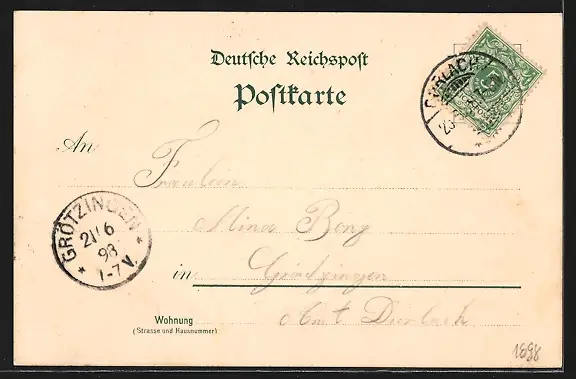 Deutsche Reichspost
Postkarte
DURLACH
An
Fräulein
Minna Berg
GRÖTZINGEN
21 6
98
1-7 V.
in Grötzingen
Amt Durlach
Wohnung
(Strasse und Hausnummer)
1898